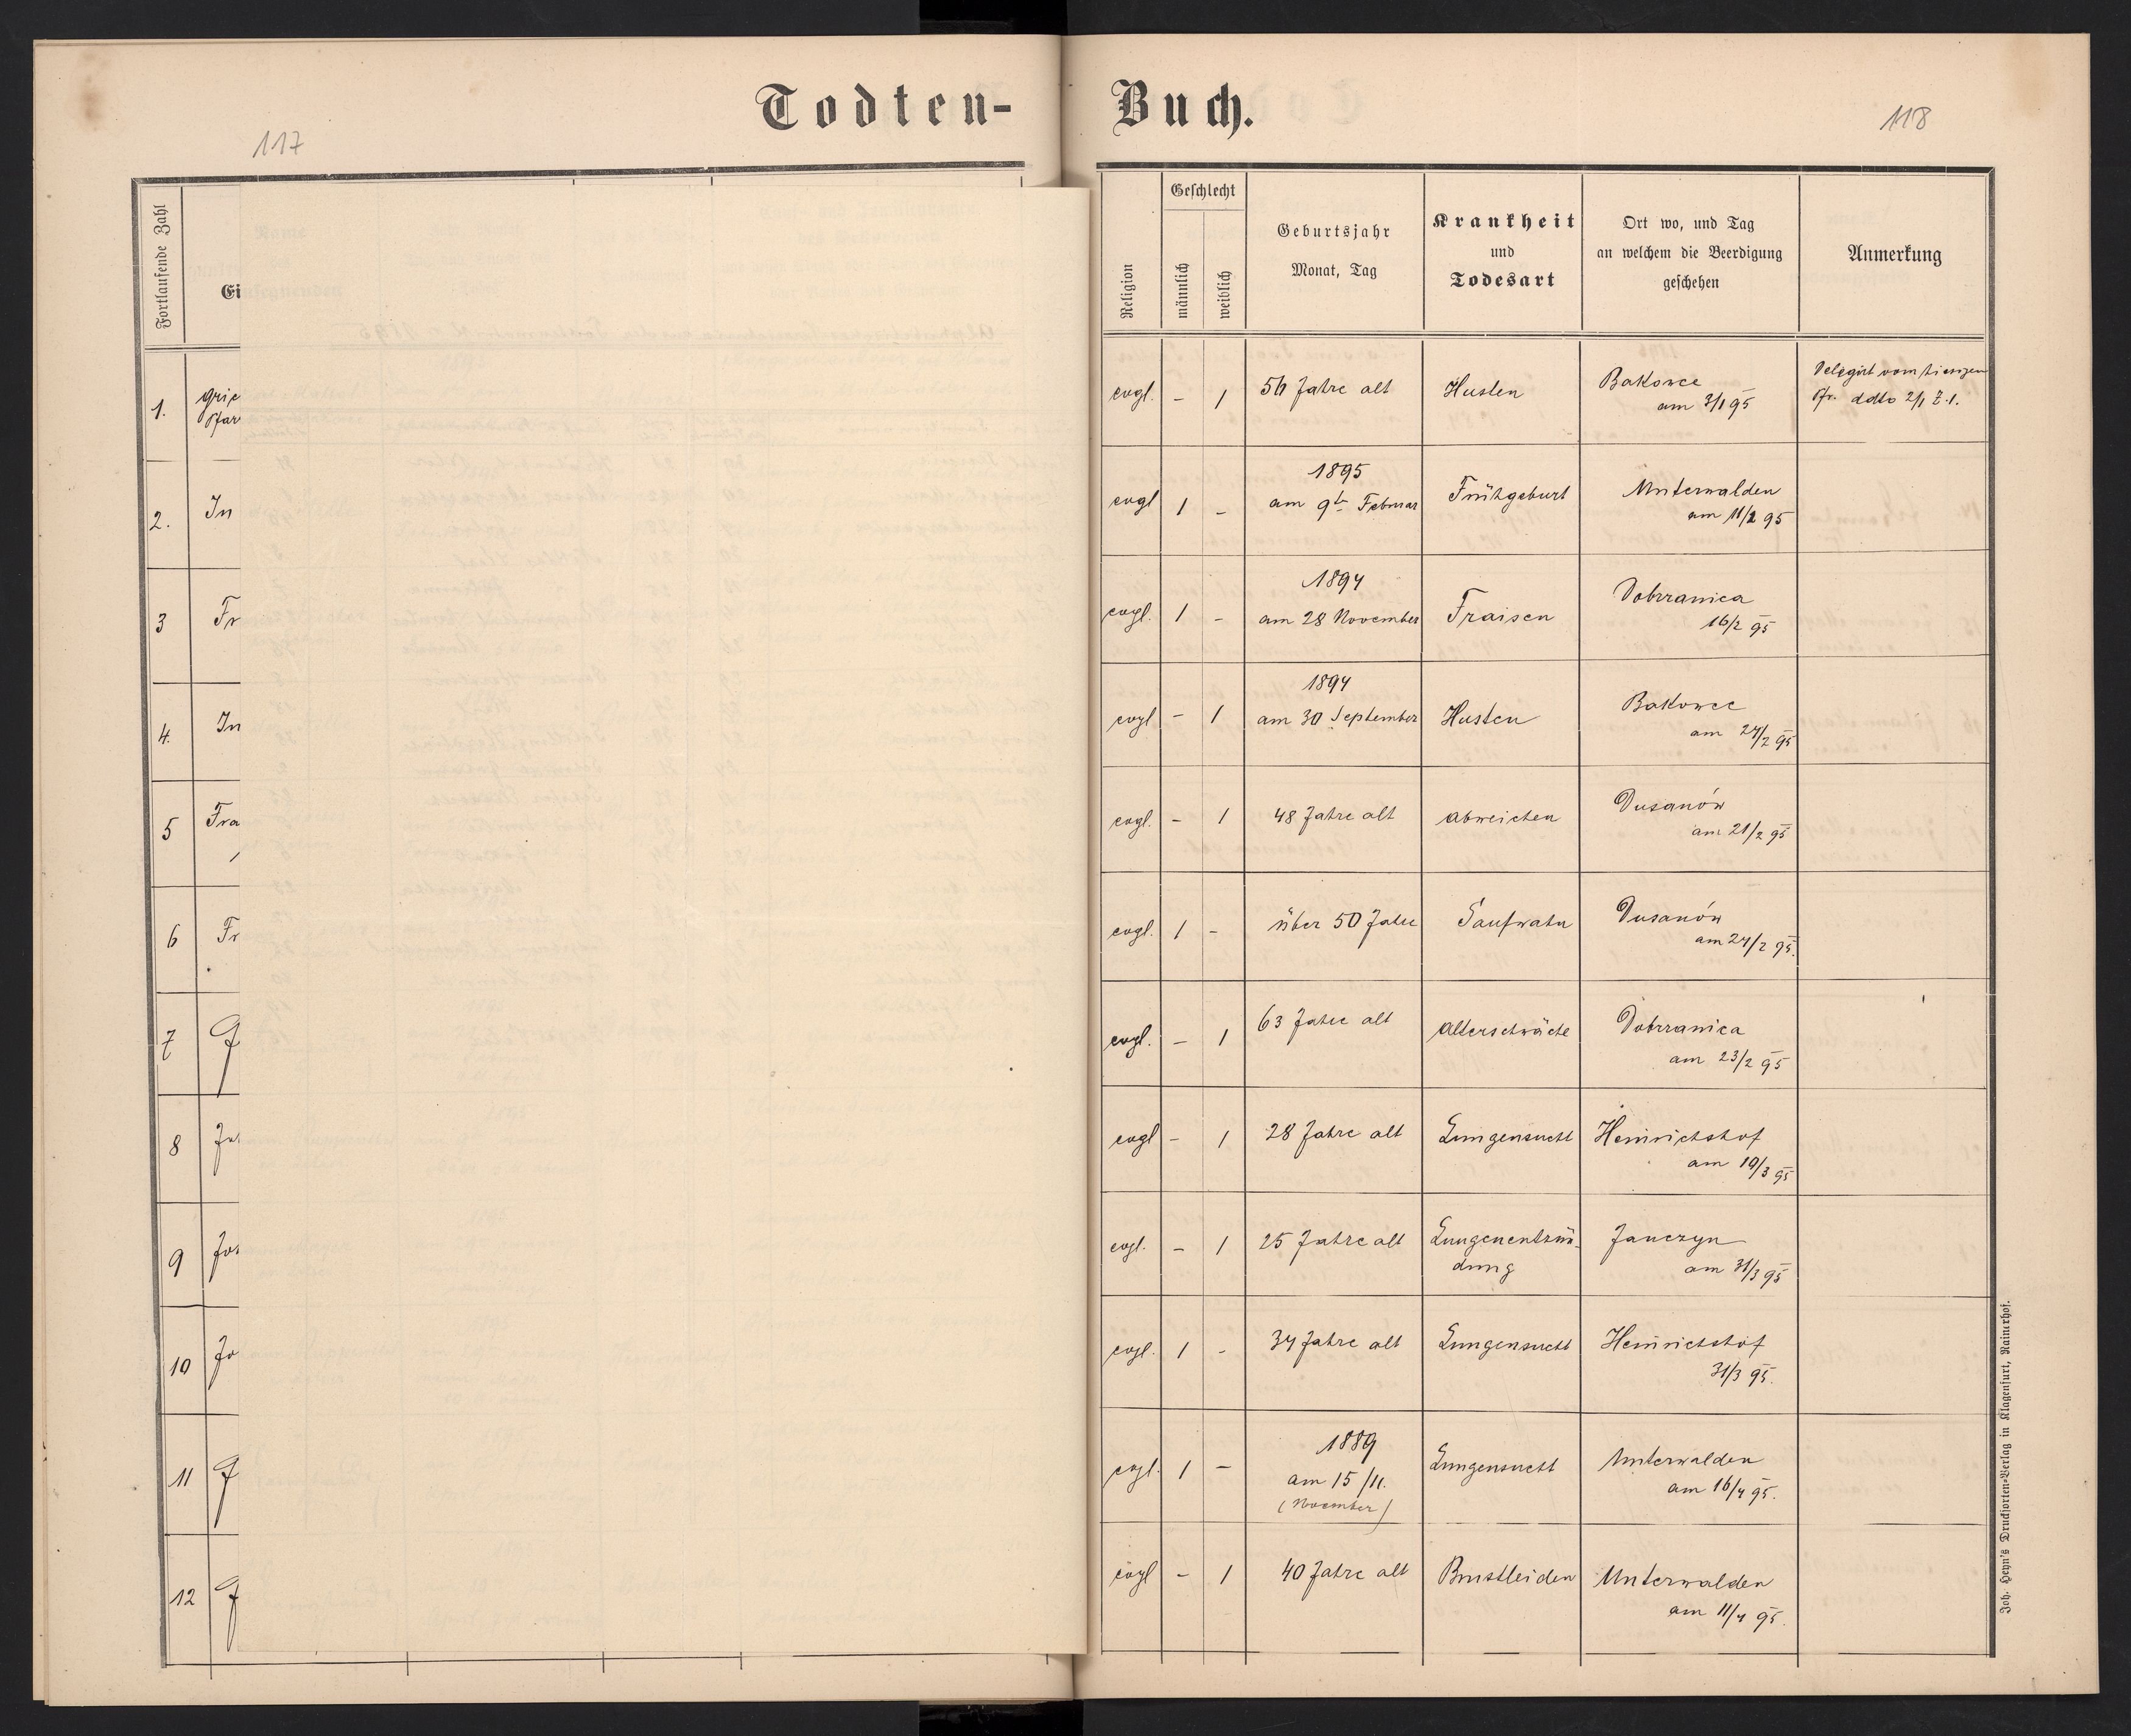 Todten-
Buch.
117
118
Fortlaufende Zahl
Ei
Religion
Geschlecht
männlich
weiblich
Geburtsjahr
Monat, Tag
Krankheit
und
Todesart
Ort wo, und Tag
an welchem die Beerdigung
geschehen
Anmerkung
1.
evgl. - 1 56 Jahre alt Husten Bakowce
am 3/1 95
ddto 2/1 Z. 1.
2. In
evgl 1 - 1895
am 9te Februar Frühgeburt Unterwalden
am 11/2 95
3 Fr
evgl. 1 - 1894
am 28 November Fraisen Dobrzanica
16/2 95
4. In
evgl - 1 1894
am 30 September Husten Bakowce
am 24/2 95
5 Fra
evgl. - 1 48 Jahre alt abweichen Dusanów
am 21/2 95
6 Fr
evgl. 1 - über 50 Jahre Saufwahn Dusanów
am 24/2 95.
7
evgl. - 1 63 Jahre alt Alterschwäche Dobrzanica
am 23/2 95
8
evgl - 1 28 Jahre alt Lungensucht Heinrichshof
am 19/3 95
9
evgl. - 1 25 Jahre alt Lungenentzün-
dung
Janczyn
am 31/3 95
10 Jo
evgl. 1 - 34 Jahre alt Lungensucht Heinrichshof
31/3 95.
11
evgl. 1 - 1889
am 15/11.
(November)
Lungensucht Unterwalden
am 16/4 95.
12
evgl - 1 40 Jahre alt Brustleiden Unterwalden
am 11/4 95.
Joh. Heyn's Drucksorten-Verlag in Klagenfurt, Rainerhof.